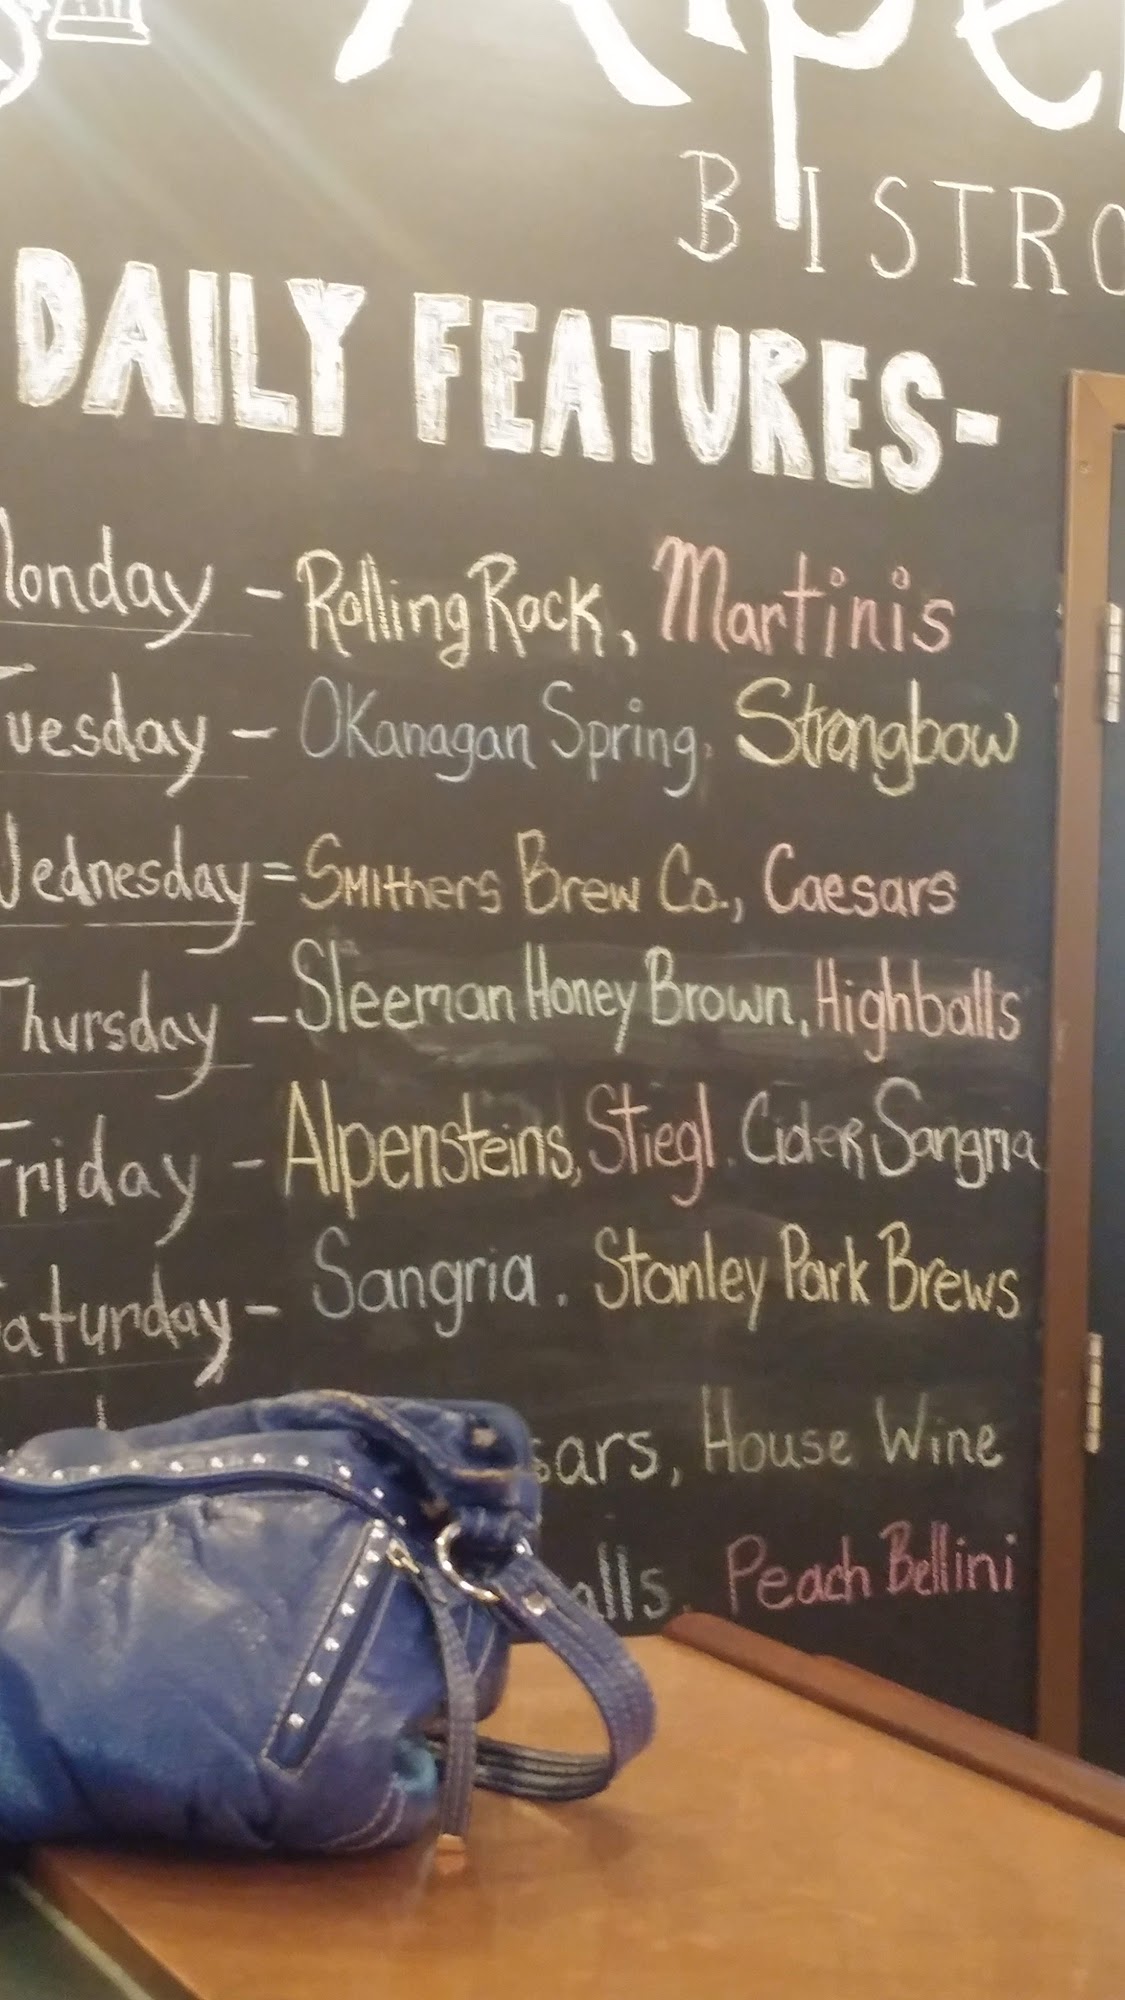 BISTRO
DAILY FEATURES-
Monday - Rolling Rock, Martinis
Tuesday - OKanagan Spring, Strongbow
Wednesday = Smithers Brew Co., Caesars
Thursday - Sleeman Honey Brown, Highballs
Friday - Alpensteins, Stiegl. Cider, Sangria
Saturday - Sangria. Stanley Park Brews
sars, House Wine
alls. Peach Bellini